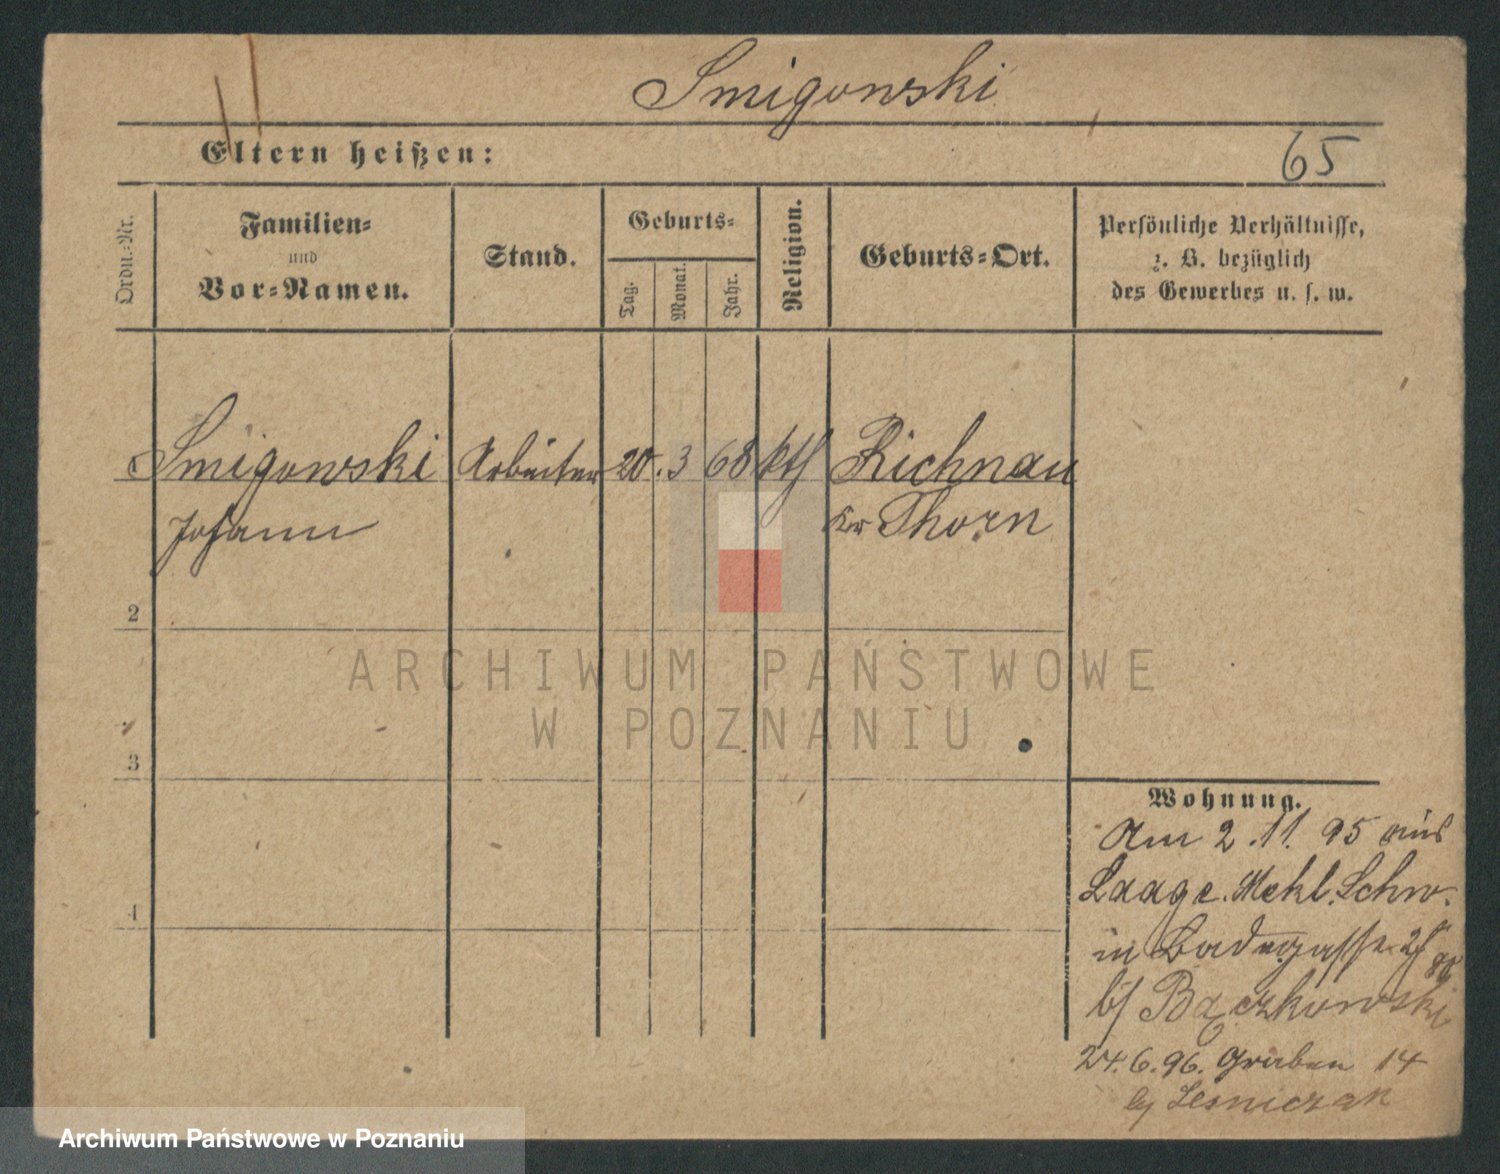 Smigowski
Eltern heißen:
65
Ordn.-Nr.
Familien-
und
Vor-Namen.
Stand.
Geburts-
Tag.
Monat.
Jahr.
Religion.
Geburts-Ort.
Persönliche Verhältnisse,
z. B. bezüglich
des Gewerbes u. s. w.
Smigowski Arbeiter 20. 3 68 kth Richnau
Johann Kr Thorn
2
3
4
ARCHIWUM PAŃSTWOWE
W POZNANIU
Wohnung.
Am 2.11.95 aus
Laage. Mekl. Schw.
in Badegasse
b/ Bączkowski
24.6.96. Graben 14
by Lesniczak
Archiwum Państwowe w Poznaniu